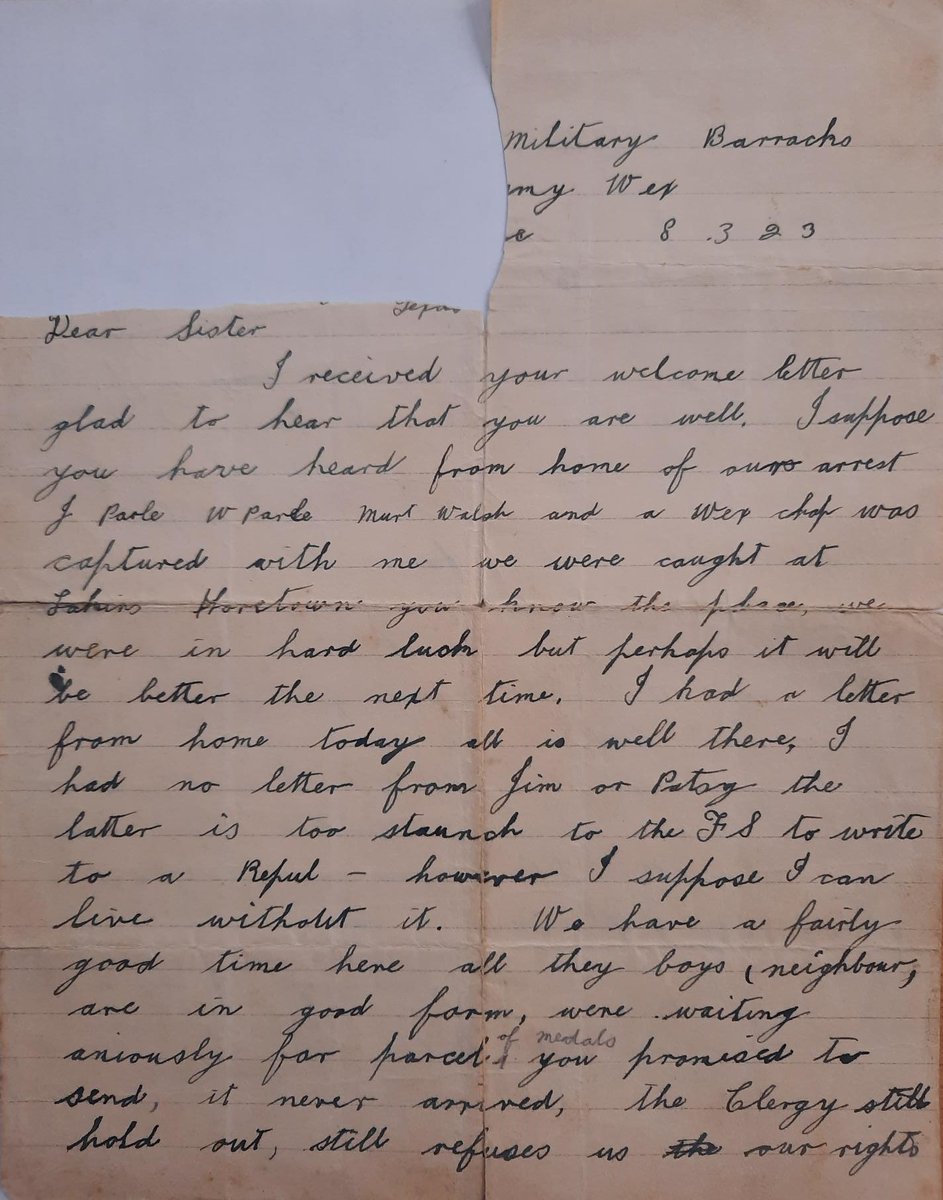 Military Barracks
my Wex
8.3 23
Dear Sister
I received your welcome letter
glad to hear that you are well. I suppose
you have heard from home of our arrest
J Parle W Parle Murt Walsh and a Wex chap was
captured with me we were caught at
Horetown you know the place, we
were in hard luck but perhaps it will
be better the next time. I had a letter
from home today all is well there, I
had no letter from Jim or Patsy the
latter is too staunch to the FS to write
to a Repul - however I suppose I can
live without it. We have a fairly
good time here all they boys (neighbour,
are in good form, were waiting
aniously for parcel of medals you promised to
send, it never arrived, the Clergy still
hold out, still refuses us the our rights